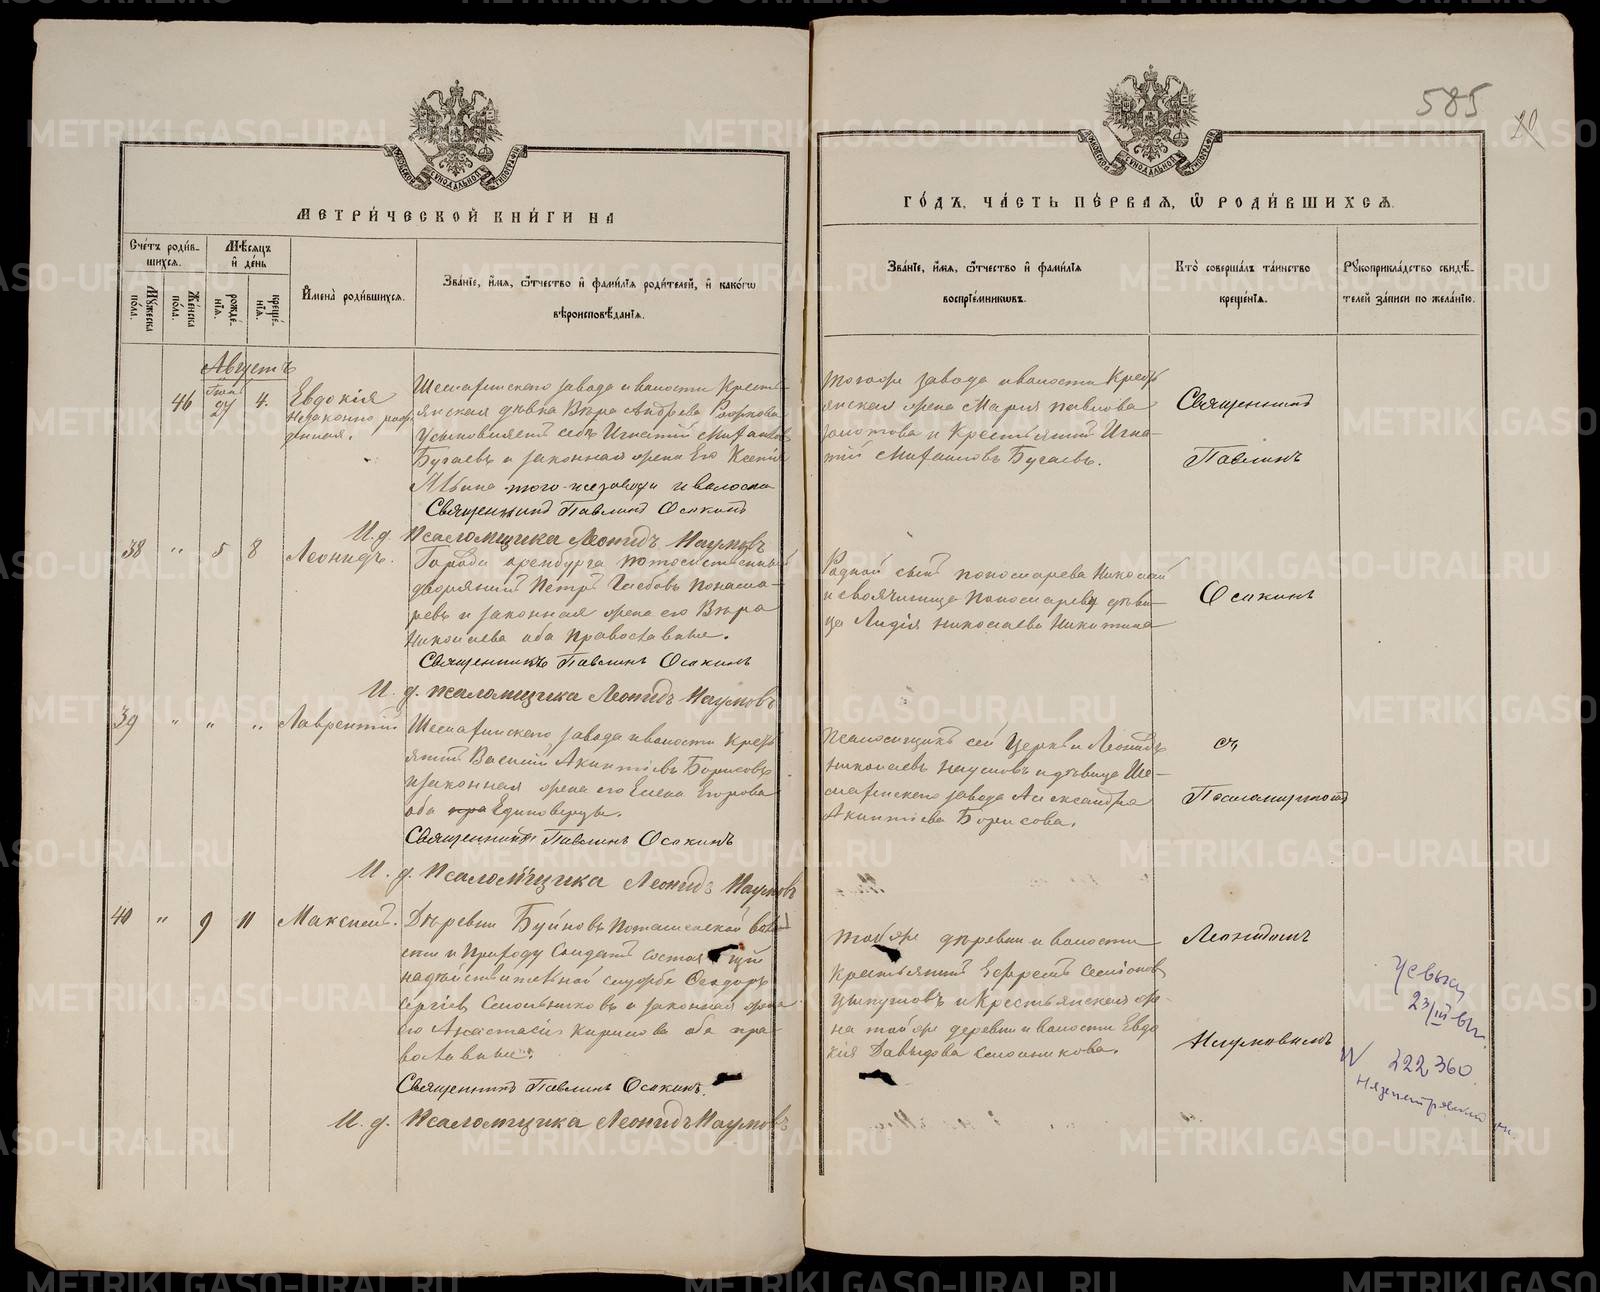 585
20
МЕТРИ́ЧЕСКОЙ КНИ́ГИ НА
ГО́ДЪ, ЧА́СТЬ ПЕ́РВАЯ, Ѽ РОДИ́ВШИХСЯ.
Сче́тъ роди́в-
шихся.
Мѣ́сяцъ
и҆ де́нь
Му́жеска по́ла.
Же́нска по́ла.
рожде́-
нїѧ.
креще́-
нїѧ.
И҆мена̀ роди́вшихся.
Зва́нїе, и҆́мя, ѻ҆́тчество и҆ фами́лїѧ роди́телей, и҆ како́гѡ
вѣроисповѣ́данїѧ.
Зва́нїе, и҆́мя, ѻ҆́тчество и҆ фами́лїѧ
воспрїе́мниковъ.
Кто̀ соверша́лъ та́инство
креще́нїѧ.
Рꙋкоприкла́дство свидѣ́-
телей за́писи по жела́нїю.
Августъ
46
27
4.
Евдокія
незаконно рож
денная.
Шемахинскаго завода и волости Кресть
янская дѣвка Вѣра Андреева
Усыновляетъ себѣ Игнатій Михаиловъ
Бугаевъ и законная жена Его Ксенія
того же завода и волости
Священникъ Павлинъ Осокинъ
И. д. Псаломщика Леонидъ Наумовъ
того же завода и волости Кресть
янская жена Марія Павлова
Золотова и Крестьянинъ Игна-
тій Михаиловъ Бугаевъ.
Священникъ
Павлинъ
38
"
5
8
Леонидъ.
Города Оренбурга потомственный
дворянинъ Петръ Глебовъ Понома-
ревъ и законная жена его Вѣра
Николаева оба православные.
Священникъ Павлинъ Осокинъ
И. д. псаломщика Леонидъ Наумовъ
Родной сынъ Пономарева Николай
и своячиница Пономарева дѣви-
ца Лидія Николаева Никитина
Осокинъ
39
"
"
"
Лаврентій
Шемахинскаго завода и волости Кресть
янинъ Василій Акинтіевъ Борисовъ
и законная жена его Елена Егорова
оба Единоверцы.
Священникъ Павлинъ Осокинъ
И. д. Псаломщика Леонидъ Наумовъ
Псаломщикъ сей Церкви Леонидъ
Николаевъ Наумовъ и дѣвица Ше-
махинскаго завода Александра
Акинтіева Борисова.
съ
Псаломщикомъ
40
"
9
11
Максимъ.
Деревни Буйновъ Поташенской воло
сти и приходу Солдатъ состоящій
на дѣйствительной службе Ѳедоръ
Сергіевъ и законная жена
его Анастасія Кирилова оба пра-
вославные.
Священникъ Павлинъ Осокинъ.
И. д. Псаломщика Леонидъ Наумовъ
той же деревни и волости
крестьянинъ Ефремъ Семіоновъ
и Крестьянская же-
на той же деревни и волости Евдо
кія Давыдова
Леонидомъ
Наумовымъ
23/III
N 222360
Нязепетровский